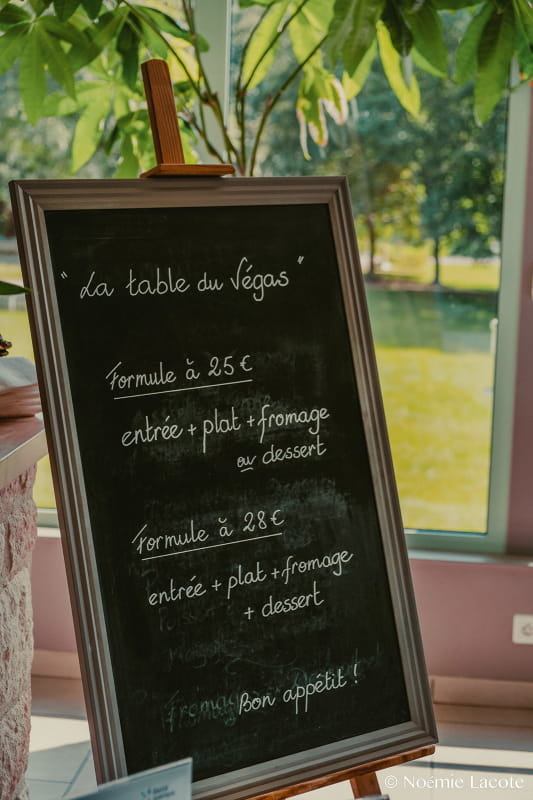 "La table du Végas"
Formule à 25 €
entrée + plat + fromage
ou dessert
Formule à 28 €
entrée + plat + fromage
+ dessert
Fromage
Bon appétit !
© Noémie Lacote